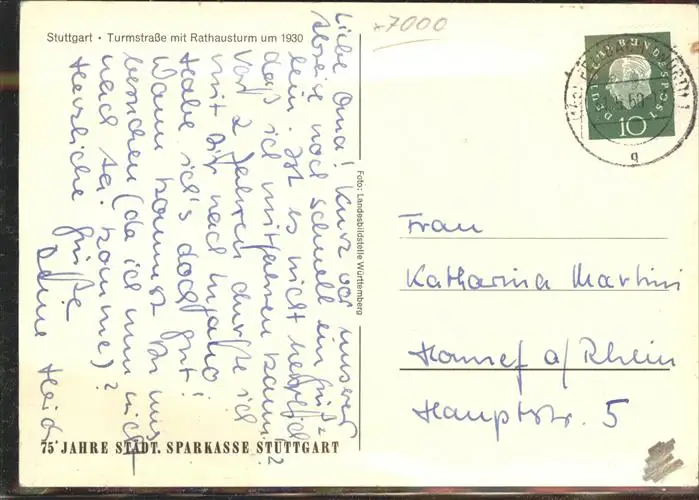 Stuttgart · Turmstraße mit Rathausturm um 1930
x7000
Liebe Oma! Kurz vor unserer
Abreise noch schnell ein Grüß-
lein. Ist es nicht herrlich
daß ich mitfahren kann?
Vor 2 Jahren durfte ich
mit Dir nach
Habe ich's doch gut!
Wann kommst Du uns
besuchen (da ich nun nicht
nach komme)?
Herzliche Grüße
Deine Heidi
Foto: Landesbildstelle Württemberg
75 JAHRE STÄDT. SPARKASSE STUTTGART
DEUTSCHE BUNDESPOST
10
g
Frau
Katharina Martini
Honnef a/Rhein
Hauptstr. 5